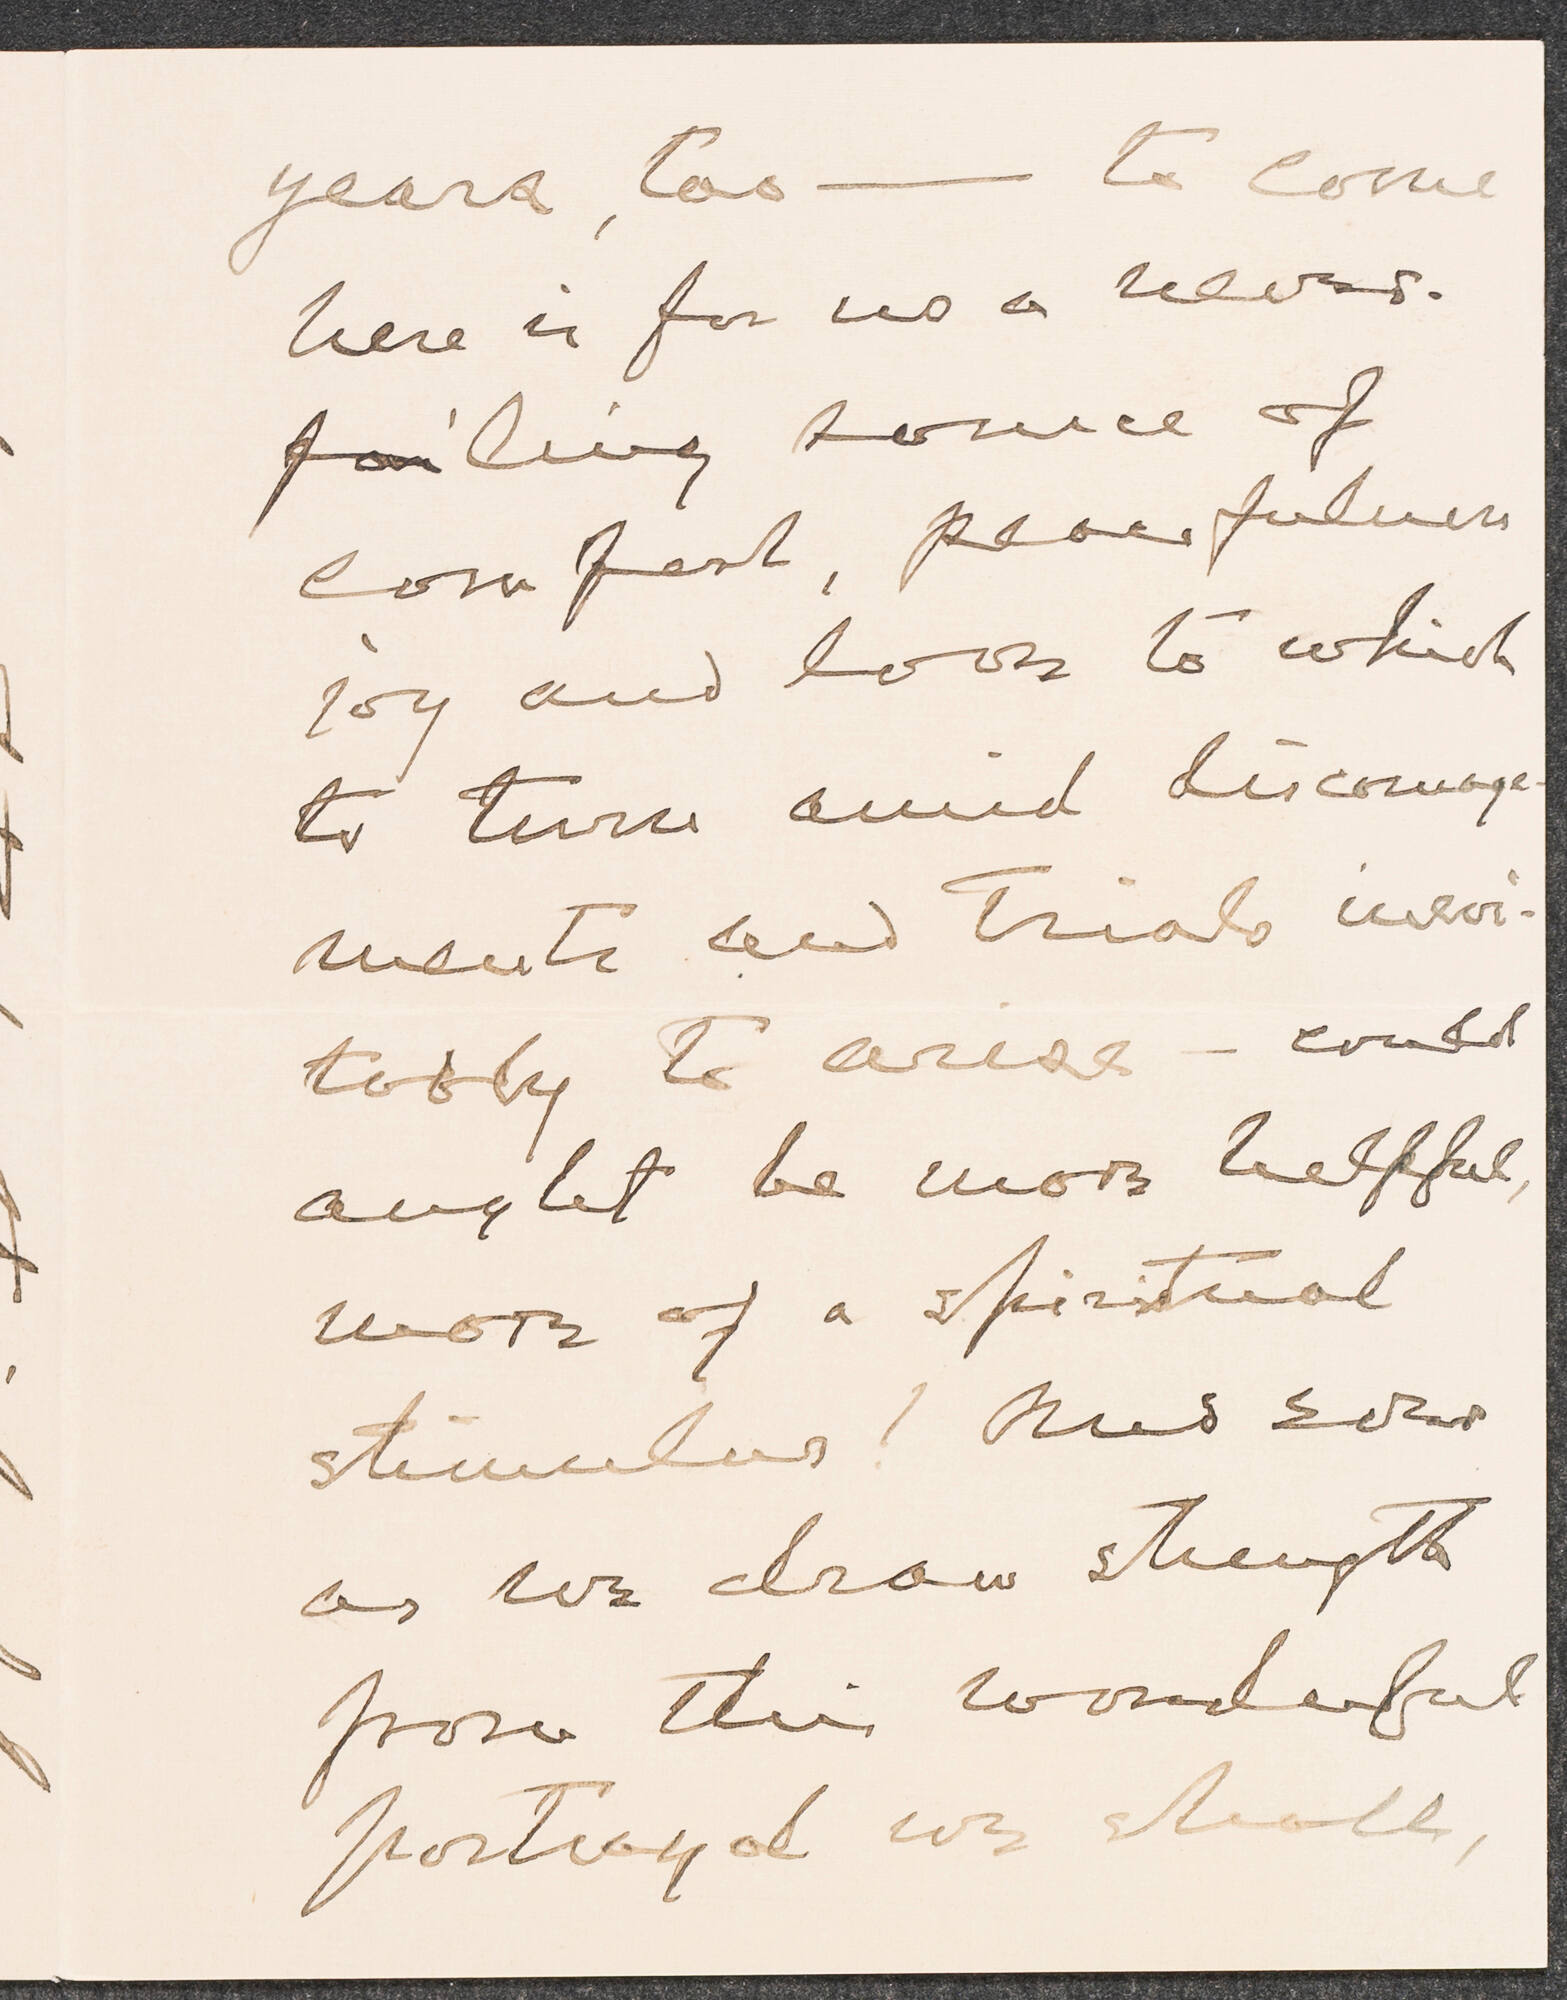 years, too — to come
here is for us a never-
failing source of
comfort, peacefulness
joy and love to which
to turn amid discourage-
ments and trials inevi-
tably to arise – could
aught be more helpful,
more of a spiritual
stimulus! And ever
as we draw strength
from this wonderful
portrayal we shall,